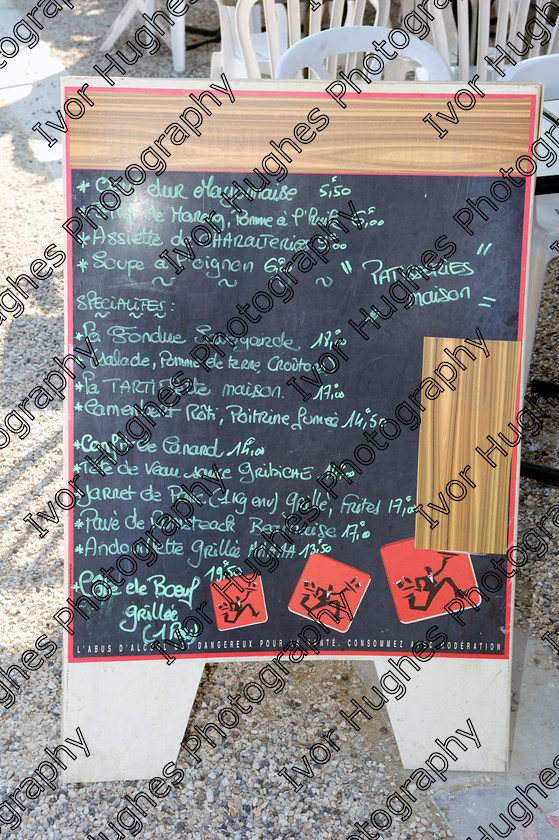 * dur Mayonnaise 5,50
de Hareng, Pomme à l'huile
* Assiette de CHARCUTERIES
* Soupe à l'oignon
" PATISSERIES "
maison
SPECIALITES :
* La Fondue Savoyarde 18,00
* Salade, Pomme de terre, Croûtons
* La TARTIFLETTE maison. 17,00
* Camembert Rôti, Poitrine fumée 14,50
* Confit de Canard 14,00
* Tête de Veau sauce GRIBICHE
* Jarret de Porc (1 kg env) Grillé, Frites 17,00
* Pavé de 17,00
* Andouillette Grillée AAAAA 13,50
19,50
* Côte de Boeuf
grillée
L'ABUS D'ALCOOL EST DANGEREUX POUR LA SANTÉ. CONSOMMEZ AVEC MODÉRATION
Ivor Hughes Photography